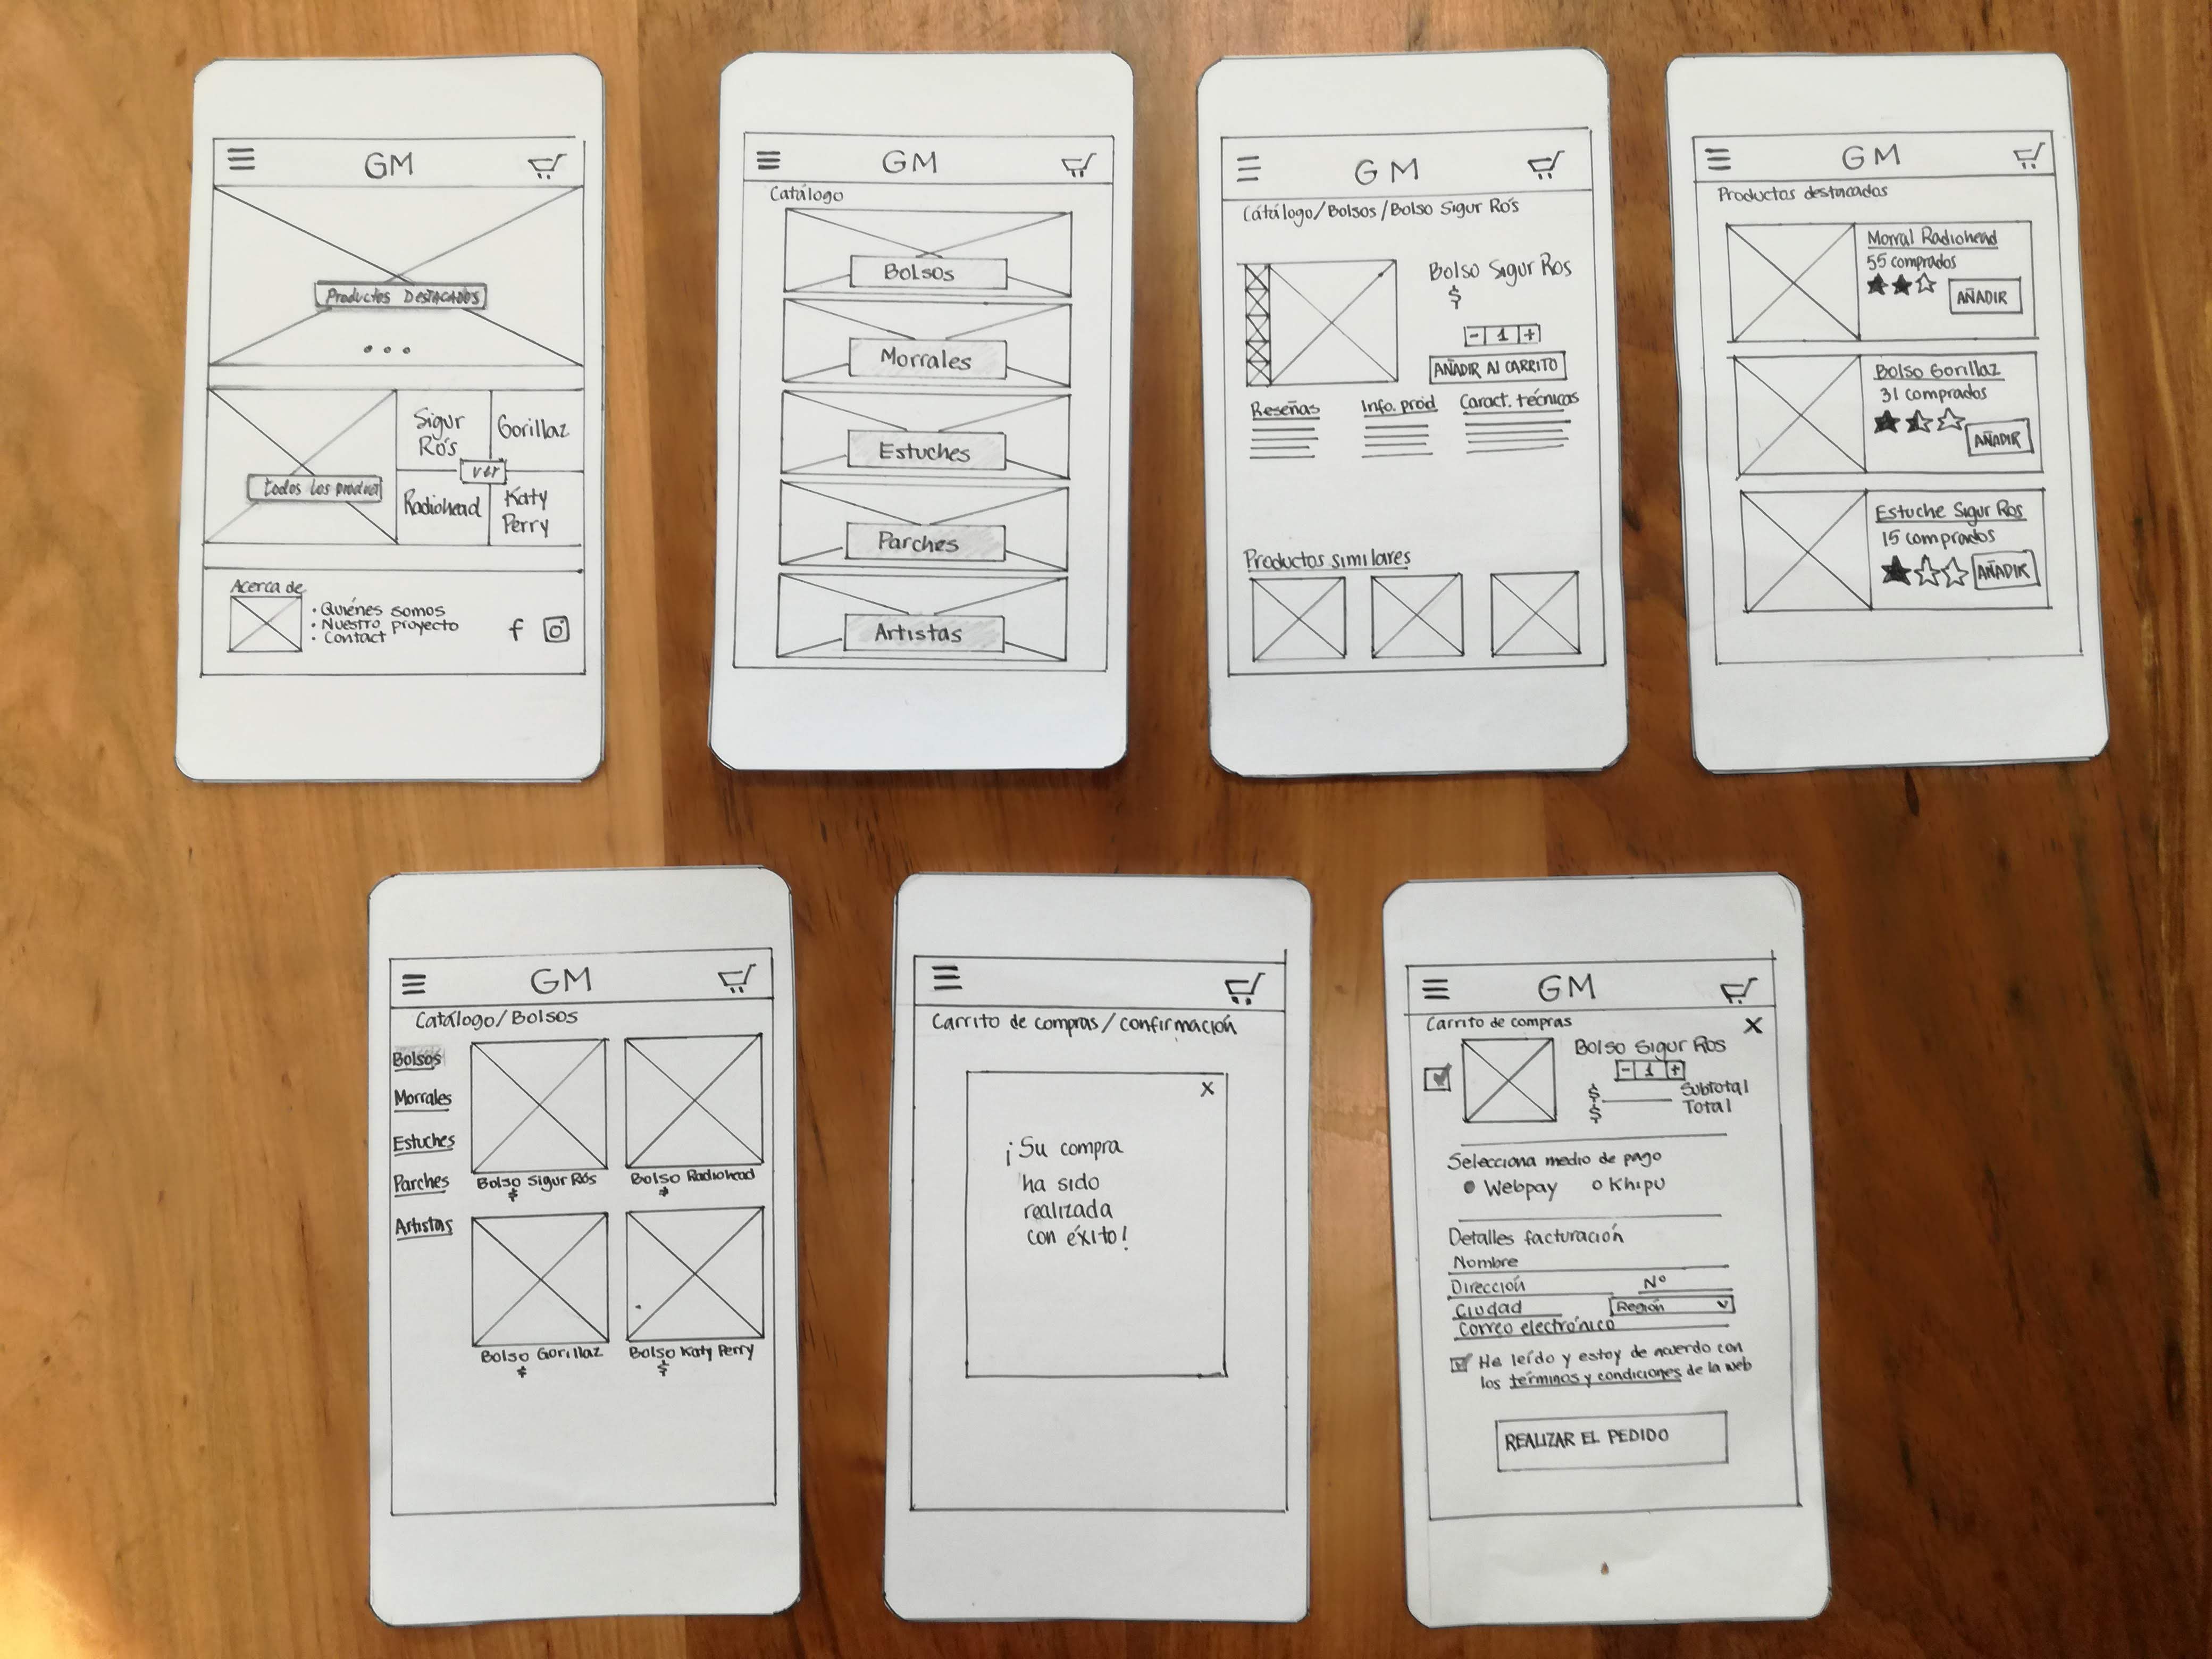 GM
Productos DESTACADOS
Sigur
Rós
Gorillaz
ver
todos los product
Radiohead
Katy
Perry
Acerca de
• Quiénes somos
• Nuestro proyecto
• Contact
f
GM
Catálogo
Bolsos
Morrales
Estuches
Parches
Artistas
GM
Cátálogo/Bolsos/Bolso Sigur Rós
Bolso Sigur Ros
$
- 1 +
AÑADIR Al CARRITO
Reseñas Info. prod Caract. técnicas
Productos similares
GM
Productos destacados
Morral Radiohead
55 comprados
AÑADIR
Bolso Gorillaz
31 comprados
AÑADIR
Estuche Sigur Ros
15 comprados
AÑADIR
GM
Catálogo/Bolsos
Bolsos
Morrales
Estuches
Parches
Artistas
Bolso Sigur Rós
$
Bolso Radiohead
$
Bolso Gorillaz
$
Bolso Katy Perry
$
Carrito de compras/confirmación
X
¡Su compra
ha sido
realizada
con éxito!
GM
Carrito de compras X
Bolso Sigur Ros
- 1 +
$ Subtotal
$ Total
Selecciona medio de pago
Webpay Khipu
Detalles facturación
Nombre
Dirección Nº
Ciudad Región
Correo electrónico
He leído y estoy de acuerdo con
los términos y condiciones de la web
REALIZAR EL PEDIDO